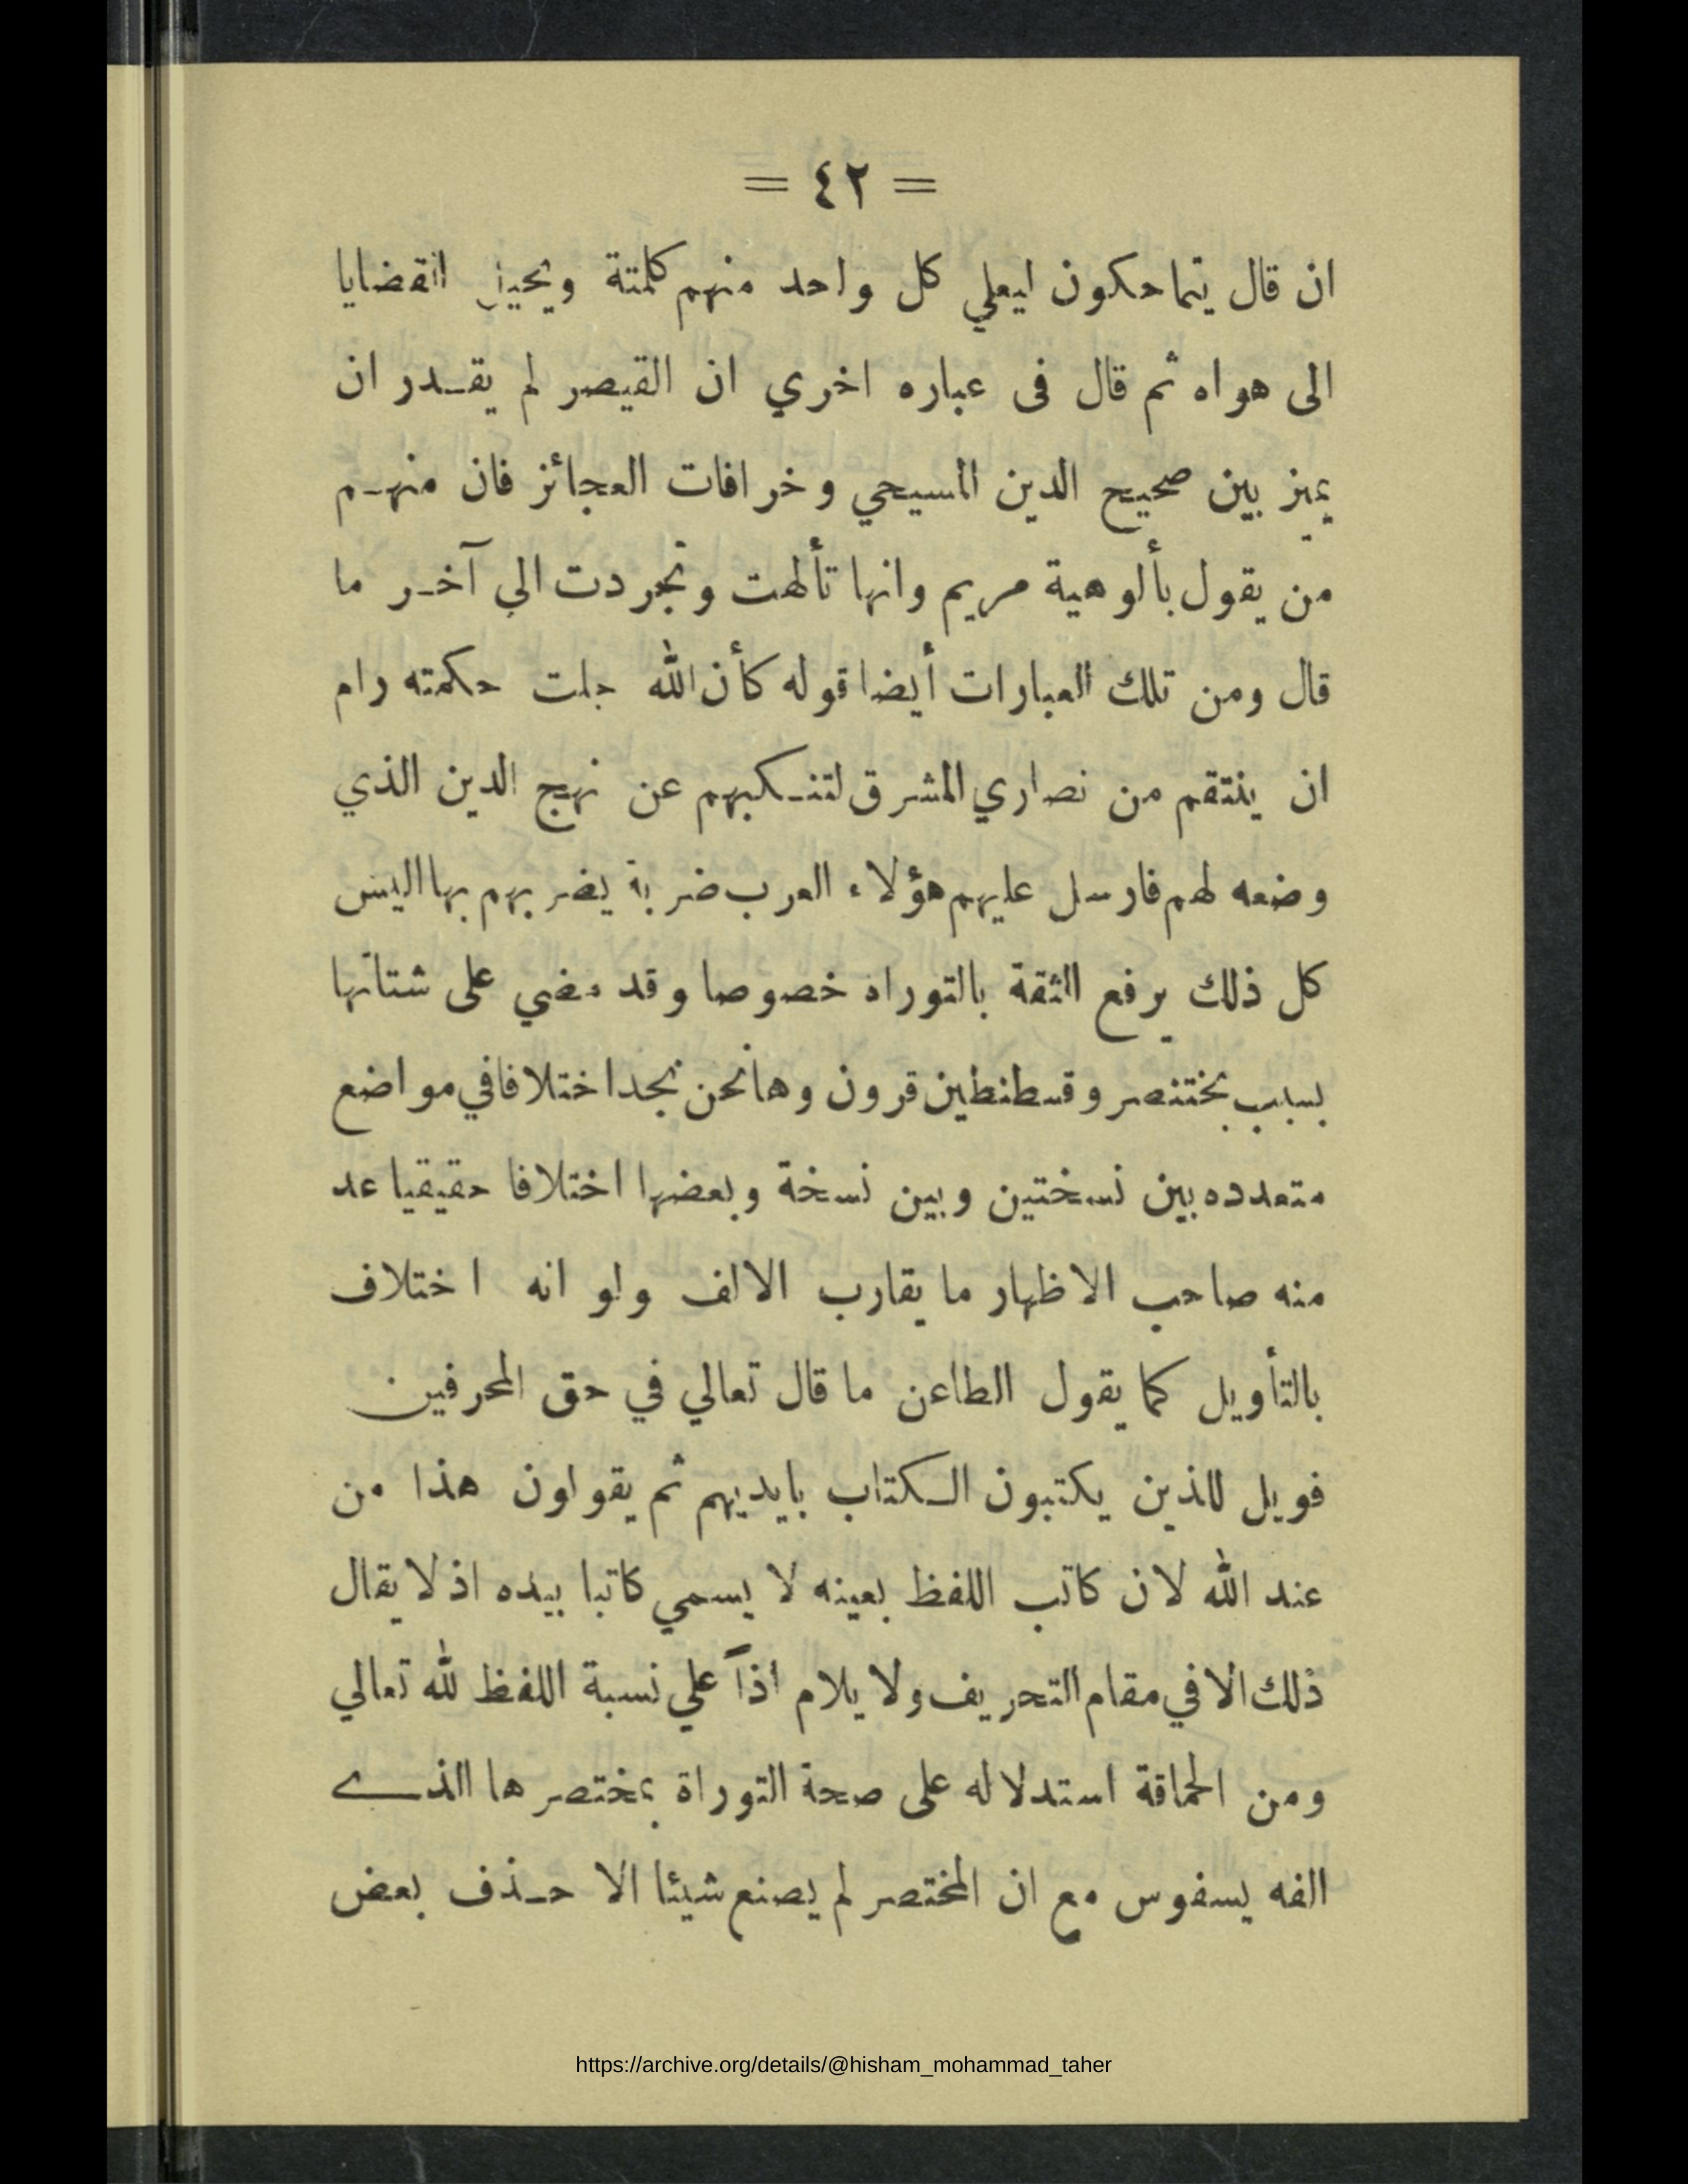 = ٤٢ =
ان قال يتماحكون ليعلي كل واحد منهم كلمتة ويحيز القضايا
الى هواه ثم قال فى عباره اخري ان القيصر لم يقدر ان
يميز بين صحيح الدين المسيحي وخرافات العجائز فان منهم
من يقول بألوهية مريم وانها تألهت وتجردت الي آخر ما
قال ومن تلك العبارات أيضا قوله كأن الله جلت حكمته رام
ان ينتقم من نصاري المشرق لتنكبهم عن نهج الدين الذي
وضعه لهم فارسل عليهم هؤلاء العرب ضربة يضربهم بها اليس
كل ذلك يرفع الثقة بالتوراه خصوصا وقد مضي على شتاتها
بسبب بختنصر وقسطنطين قرون وها نحن نجد اختلافا في مواضع
متعدده بين نسختين وبين نسخة وبعضها اختلافا حقيقيا عد
منه صاحب الاظهار ما يقارب الالف ولو انه اختلاف
بالتأويل كما يقول الطاعن ما قال تعالي في حق المحرفين
فويل للذين يكتبون الكتاب بايديهم ثم يقولون هذا من
عند الله لان كاتب اللفظ بعينه لا يسمي كاتبا بيده اذ لا يقال
ذلك الا في مقام التحريف ولا يلام اذاً علي نسبة اللفظ لله تعالي
ومن الحماقة استدلاله على صحة التوراة بمختصرها الذى
الفه يسفوس مع ان المختصر لم يصنع شيئا الا حذف بعض
https://archive.org/details/@hisham_mohammad_taher